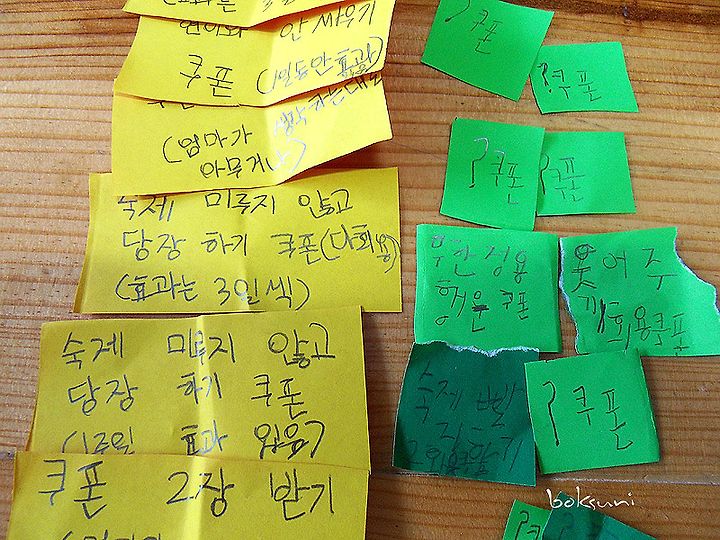 (효과는 3일
안 싸우기
쿠폰 (1일동안 효과)
생각하는대로
(엄마가
아무거나)
숙제 미루지 않고
당장 하기 쿠폰(다회용)
(효과는 3일씩)
숙제 미루지 않고
당장 하기 쿠폰
(1주일 효과 있음)
쿠폰 2장 받기
?쿠폰
?쿠폰
?쿠폰
?쿠폰
무한정용
행운쿠폰
웃어주
기1회용쿠폰
숙제 빨
?쿠폰
boksuni